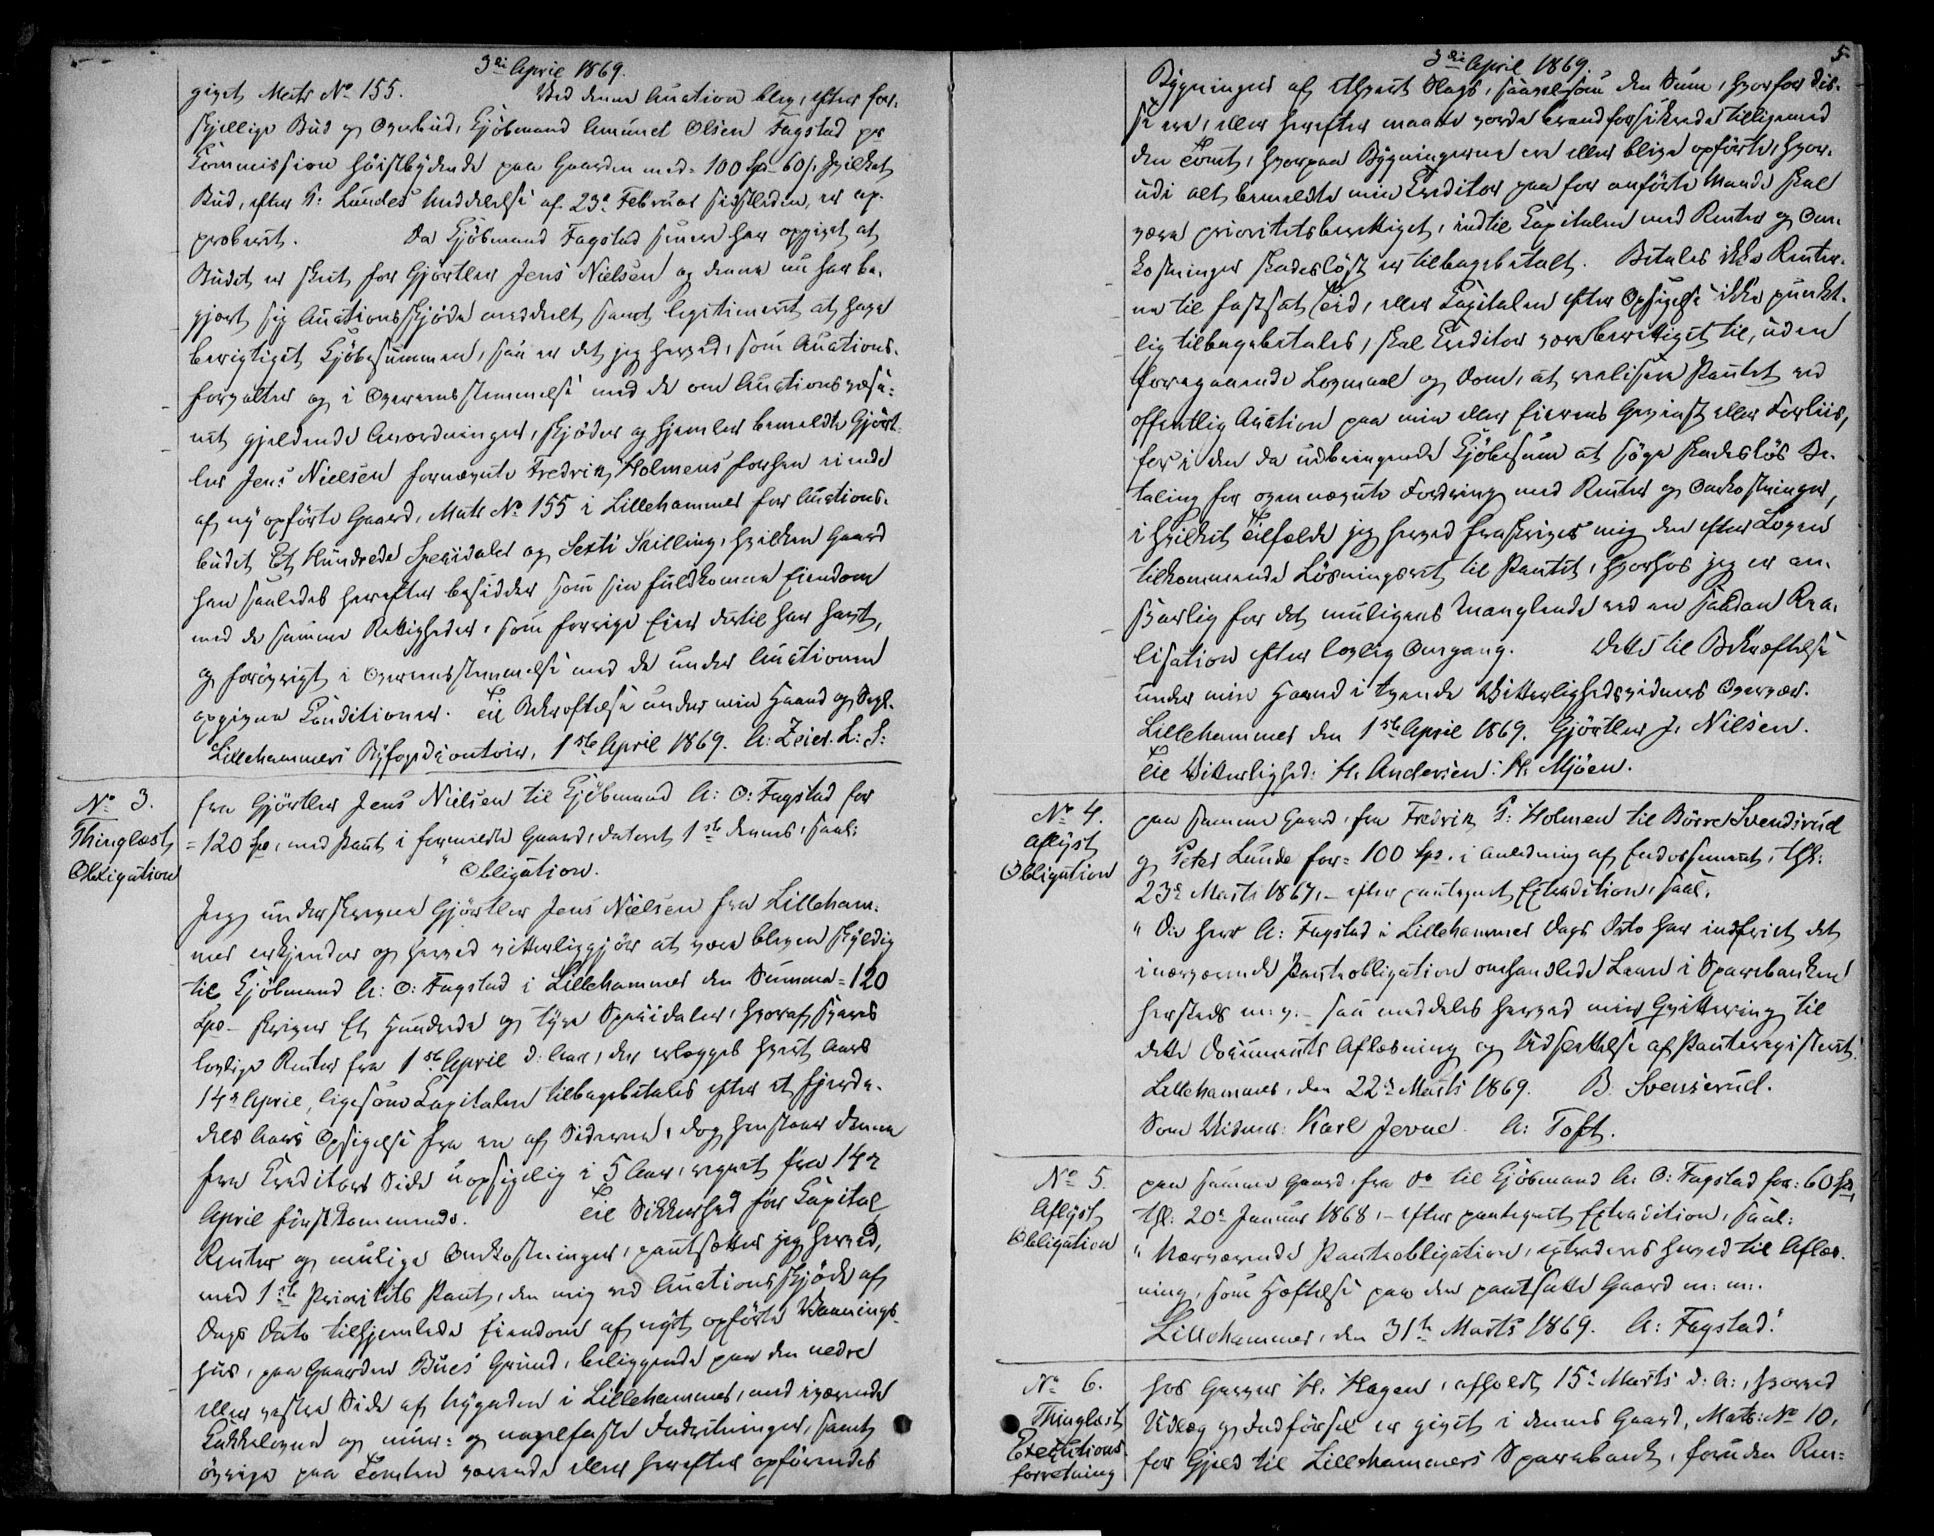 3die April 1869.
givet Matr No 155. Ved denne Auction blev, efter for-
skjellige Bud og Overbud, Kjöbmand Amund Olsen Fagstad pr
Commission höistbydende paa Gaarden med = 100 Spd 60 s. hvilket
Bud, efter P: Lundes Meddelelse af 23de Februar sidstleden, er ap-
proberet. Da Kjöbmand Fagstad senere har opgivet at
Budet er skeet for Gjörtler Jens Nielsen og denne nu har be-
gjært sig Auctionsskjöde meddeelt samt legitimeret at have
berigtiget Kjöbesummen, saa er det jeg herved, som Auctions-
forvalter og i Overeensstemmelse med de om Auctionsvæse-
net gjeldende Anordninger, skjöder og hjemler bemeldte Gjört-
ler Jens Nielsen fornævnte Fredrik Holmens forhen eiende
af ny opförte Gaard, Matr No 155 i Lillehammer for Auctions-
budet Et Hundrede Speciedaler og Sexti Skilling, hvilken Gaard
han saaledes herefter besidder som sin fuldkomne Eiendom
med de samme Rettigheder, som forrige Eier dertil har havt,
og forövrigt i Overeensstemmelse med de under Auctionen
opgivne Conditioner. Til Bekræftelse under min Haand og Segl.
Lillehammers Byfogedcontoir, 1ste April 1869. A: Zeier. L: S:
No 3.
Thinglæst
Obligation
fra Gjörtler Jens Nielsen til Kjöbmand A: O: Fagstad for
= 120 Spd, med Pant i formeldte Gaard, dateret 1ste dennes, saal:
" Obligation.
Jeg underskrevne Gjörtler Jens Nielsen fra Lilleham-
mer erkjender og herved vitterliggjör at være bleven skyldig
til Kjöbmand A: O: Fagstad i Lillehammer den Summa = 120
Spd – skriver Et Hundrede og tyve Speciedaler, hvoraf svares
lovlige Renter fra 1ste April d: Aar, der erlægges hvert Aars
14de April, ligesom Capitalen tilbagebetales efter et Fjerde-
dels Aars Opsigelse fra en af Siderne, dog henstaar denne
fra Creditors Side uopsigelig i 5 Aar, regnet fra 14de
April förstkommende. Til Sikkerhed for Capital,
Renter og mulige Omkostninger, pantsætter jeg herved,
med 1ste Prioritets Pant, den mig ved Auctionsskjöde af
Dags Dato tilhjemlede Eiendom af nyt opförte Vaanings-
huus, paa Gaarden Bues Grund, beliggende paa den nedre
eller vestre Side af Nygaden i Lillehammer, med iværende
Kakkelovne og muur- og nagelfaste Indretninger, samt
övrige paa Tomten værende eller herefter opförendes
3die April 1869.
5
Bygninger af ethvert Slags, saavelsom den Sum, hvorfor dis-
se ere, eller herefter maatte vorde brandforsikrede tilligemed
den Tomt, hvorpaa Bygningerne ere eller blive opförte, hvor-
udi alt bemeldte min Creditor paa foranförte Maade skal
være prioritetsberettiget, indtil Capitalen med Renter og Om-
kostninger skadeslöst er tilbagebetalt. Betales ikke Renter-
ne til fastsat Tid, eller Capitalen efter Opsigelse ikke punkt-
lig tilbagebetales, skal Creditor være berettiget til, uden
foregaaende Lovmaal og Dom, at realisere Pantet ved
offentlig Auction paa min eller Eierens Gevinst eller Forliis,
for i den da udbringende Kjöbesum at söge skadeslös Be-
taling for ovennævnte Fordring med Renter og Omkostninger,
i hvilket Tilfælde jeg herved fraskriver mig den efter Loven
tilkommende Lösningsret til Pantet, hvorhos jeg er an-
svarlig for det muligens Manglende ved en saadan Rea-
lisation efter lovlig Omgang. Dette til Bekræftelse
under min Haand i tvende Vitterlighedsvidners Overvær.
Lillehammer den 1ste April 1869. Gjörtler J. Nilsen.
Til Vitterlighed: H. Andersen. H. Mjöen.
No 4.
Aflyst
Obligation
paa samme Gaard, fra Fredrik P: Holmen til Börre Svendsrud
og Peter Lunde for = 100 Spd. i Anledning af Endossement, thl:
23de Marts 1867, – efter paategnet Extradition, saal:
" Da Herr A: Fagstad i Lillehammer Dags Dato har indfriet det
i nærværende Pantobligation omhandlede Laan i Sparebanken
hersteds m: v: – saa meddeles herved min Qvittering til
dette Documents Aflæsning og Udslettelse af Panteregisteret.
Lillehammer, den 22de Marts 1869. B. Svenserud.
Som Vidner: Karl Jevne. A: Toft.
No 5.
Aflyst
Obligation
paa samme Gaard, fra do til Kjöbmand A: O: Fagstad for: 60 Spd,
thl: 20de Januar 1868, – efter paategnet Extradition, saal:
" Nærværende Pantobligation, extraderes herved til Aflæs-
ning, som Hæftelse paa den pantsatte Gaard m: m:.
Lillehammer, den 31te Marts 1869. A: Fagstad."
No 6.
Thinglæst
Executions-
forretning
hos Garver H. Hagen, afholdt 15de Marts d: A:, hvorved
Udlæg og Indförsel er givet i dennes Gaard, Matr: No 10,
for Gjeld til Lillehammers Sparebank, foruden Ren-